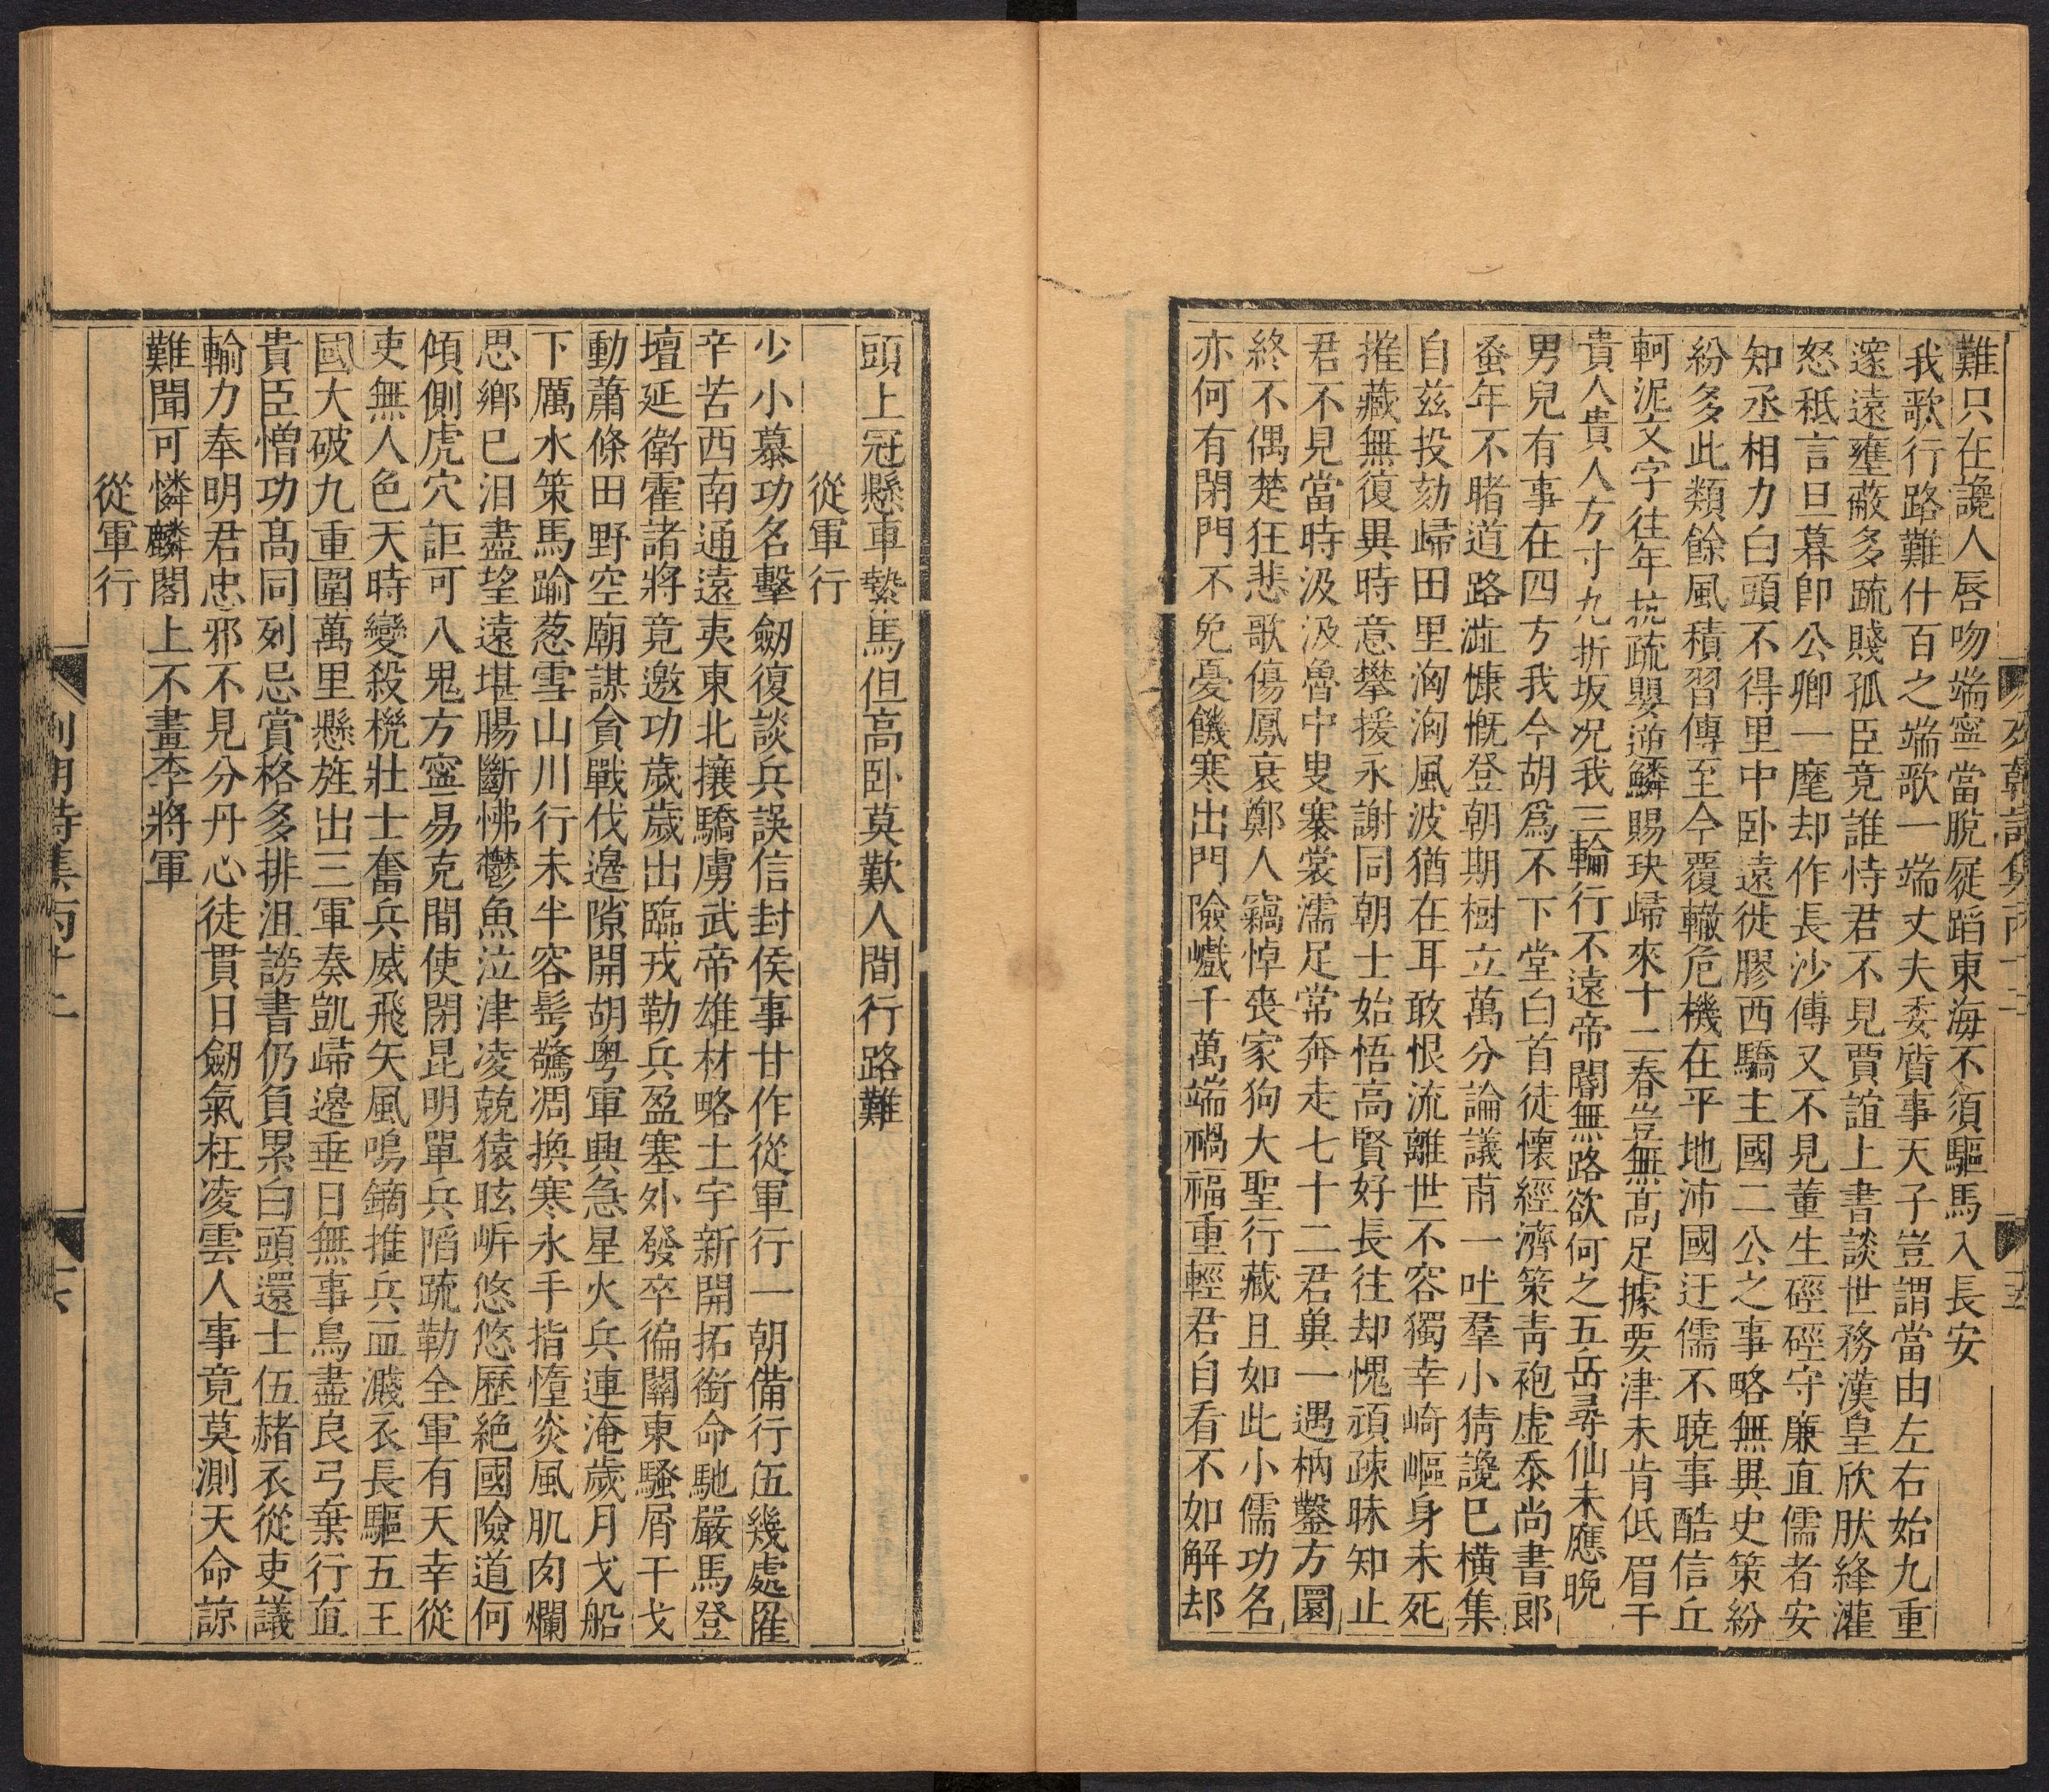 難只在讒人唇吻端寧當脫屣蹈東海不須驅馬入長安
我歌行路難什百之端歌一端丈夫委質事天子豈謂當由左右始九重
邃遠壅蔽多疏賤孤臣竟誰恃君不見賈誼上書談世務漢皇欣肰絳灌
怒秖言旦暮卽公卿一麾却作長沙傅又不見董生硜硜守廉直儒者安
知丞相力白頭不得里中卧遠徙膠西驕主國二公之事略無異史策紛
紛多此類餘風積習傳至今覆轍危機在平地沛國迂儒不曉事酷信丘
軻泥文字往年抗疏嬰逆鱗賜玦歸來十二春豈無高足據要津未肯低眉干
貴人貴人方寸九折坂況我三輪行不遠帝閽無路欲何之五岳尋仙未應晚
男兒有事在四方我今胡爲不下堂白首徒懷經濟策靑袍虛忝尚書郎
蚤年不睹道路澁慷慨登朝期樹立萬分論議甫一吐羣小猜讒已橫集
自兹投劾歸田里洶洶風波猶在耳敢恨流離世不容獨幸崎嶇身未死
摧藏無復異時意攀援永謝同朝士始悟高賢好長往却愧頑疎昧知止
君不見當時汲汲魯中叟褰裳濡足常奔走七十二君兾一遇柄鑿方圜
終不偶楚狂悲歌傷鳳哀鄭人竊悼喪家狗大聖行藏且如此小儒功名
亦何有閉門不免憂饑寒出門險巇千萬端禍福重輕君自看不如解却
頭上冠懸車縶馬但高卧莫歎人間行路難
從軍行
少小慕功名擊劒復談兵誤信封侯事甘作從軍行一朝備行伍幾處罹
辛苦西南通遠夷東北攘驕虜武帝雄材略土宇新開拓銜命馳嚴馬登
壇延衛霍諸將竟邀功歲歲出臨戎勒兵盈塞外發卒徧關東騷屑干戈
動蕭條田野空廟謀貪戰伐邉隙開胡粤軍興急星火兵連淹歲月戈船
下厲水策馬踰葱雪山川行未半容髩驚凋換寒氷手指墮炎風肌肉爛
思鄉已泪盡望遠堪腸斷怫鬱魚泣津凌兢猿眩㟁悠悠歷絕國險道何
傾側虎穴詎可入鬼方寧易克間使閉昆明單兵陷疏勒全軍有天幸從
吏無人色天時變殺機壯士奮兵威飛矢風鳴鏑推兵血濺衣長驅五王
國大破九重圍萬里懸旌出三軍奏凱歸邉垂日無事鳥盡良弓棄行直
貴臣憎功髙同列忌賞格多排沮謗書仍負累白頭還士伍赭衣從吏議
輸力奉明君忠邪不見分丹心徒貫日劒氣枉凌雲人事竟莫測天命諒
難聞可憐麟閣上不畫李將軍
從軍行
列朝詩集丙十二